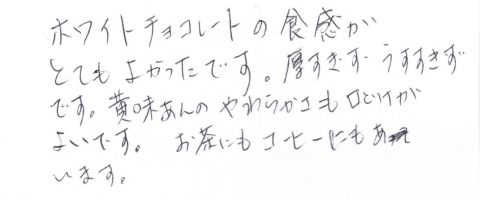 ホワイトチョコレートの食感が
とてもよかったです。厚すぎず うすすぎず
です。黄味あんのやわらかさも口どけが
よいです。 お茶にもコーヒーにもあ
います。